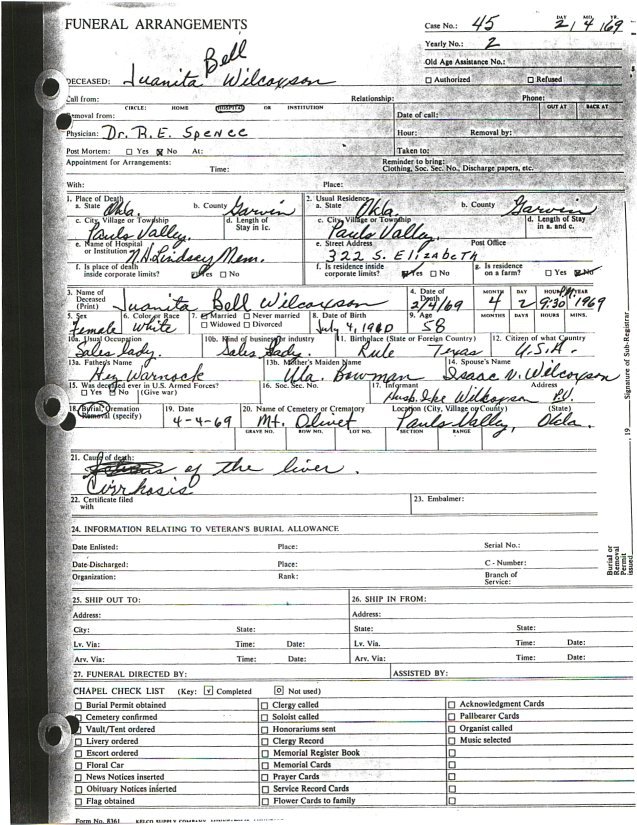 FUNERAL ARRANGEMENTS
Case No.: 45
DAY MO. YR.
2 / 4 / 69
Yearly No.: 2
Old Age Assistance No.:
DECEASED: Juanita Bell Wilcoxson
☐ Authorized ☐ Refused
Call from: Relationship: Phone:
CIRCLE: HOME HOSPITAL OR INSTITUTION
OUT AT BACK AT
Removal from: Date of call:
Physician: Dr. R.E. Spence Hour: Removal by:
Post Mortem: ☐ Yes ☒ No At: Taken to:
Appointment for Arrangements: Time:
Reminder to bring:
Clothing, Soc. Sec. No., Discharge papers, etc.
With: Place:
1. Place of Death
a. State Okla. b. County Garvin
2. Usual Residence
a. State Okla b. County Garvin
c. City, Village or Township Pauls Valley. d. Length of Stay in 1c.
c. City, Village or Township Pauls Valley. d. Length of Stay in a. and c.
e. Name of Hospital or Institution Lindsey Mem.
e. Street Address 322 S. Elizabeth Post Office
f. Is place of death inside corporate limits? ☒ Yes ☐ No
f. Is residence inside corporate limits? ☒ Yes ☐ No
g. Is residence on a farm? ☐ Yes ☒ No
3. Name of Deceased (Print) Juanita Bell Wilcoxson
4. Date of Death 2/4/69
MONTH DAY HOUR YEAR
4 2 9:30 PM 1969
5. Sex Female
6. Color or Race White
7. ☒ Married ☐ Never married
☐ Widowed ☐ Divorced
8. Date of Birth July 4, 1910
9. Age 58
MONTHS DAYS HOURS MINS.
10a. Usual Occupation Sales lady.
10b. Kind of business or industry Sales Lady.
11. Birthplace (State or Foreign Country) Rule Texas
12. Citizen of what Country U.S.A.
13a. Father's Name Hez Warnock
13b. Mother's Maiden Name Ula Bowman
14. Spouse's Name Isaac V. Wilcoxson
15. Was deceased ever in U.S. Armed Forces?
☐ Yes ☒ No (Give war)
16. Soc. Sec. No.
17. Informant Husb. Ike Wilcoxson Address P.V.
18. Burial, Cremation Removal (specify)
19. Date 4-4-69
20. Name of Cemetery or Crematory Mt. Olivet
Location (City, Village or County) Pauls Valley, (State) Okla.
GRAVE NO. ROW NO. LOT NO. SECTION RANGE
21. Cause of death:
of the liver.
Cirrhosis
22. Certificate filed with
23. Embalmer:
24. INFORMATION RELATING TO VETERAN'S BURIAL ALLOWANCE
Date Enlisted: Place: Serial No.:
Date Discharged: Place: C - Number:
Organization: Rank: Branch of Service:
25. SHIP OUT TO: 26. SHIP IN FROM:
Address: Address:
City: State: State: State:
Lv. Via: Time: Date: Lv. Via. Time: Date:
Arv. Via: Time: Date: Arv. Via: Time: Date:
27. FUNERAL DIRECTED BY: ASSISTED BY:
CHAPEL CHECK LIST (Key: ☑ Completed ⊡ Not used)
☐ Burial Permit obtained ☐ Clergy called ☐ Acknowledgment Cards
☐ Cemetery confirmed ☐ Soloist called ☐ Pallbearer Cards
☐ Vault/Tent ordered ☐ Honorariums sent ☐ Organist called
☐ Livery ordered ☐ Clergy Record ☐ Music selected
☐ Escort ordered ☐ Memorial Register Book ☐
☐ Floral Car ☐ Memorial Cards ☐
☐ News Notices inserted ☐ Prayer Cards ☐
☐ Obituary Notices inserted ☐ Service Record Cards ☐
☐ Flag obtained ☐ Flower Cards to family ☐
Form No. 8361
Signature of Sub-Registrar
, 19
Burial or Removal Permit issued